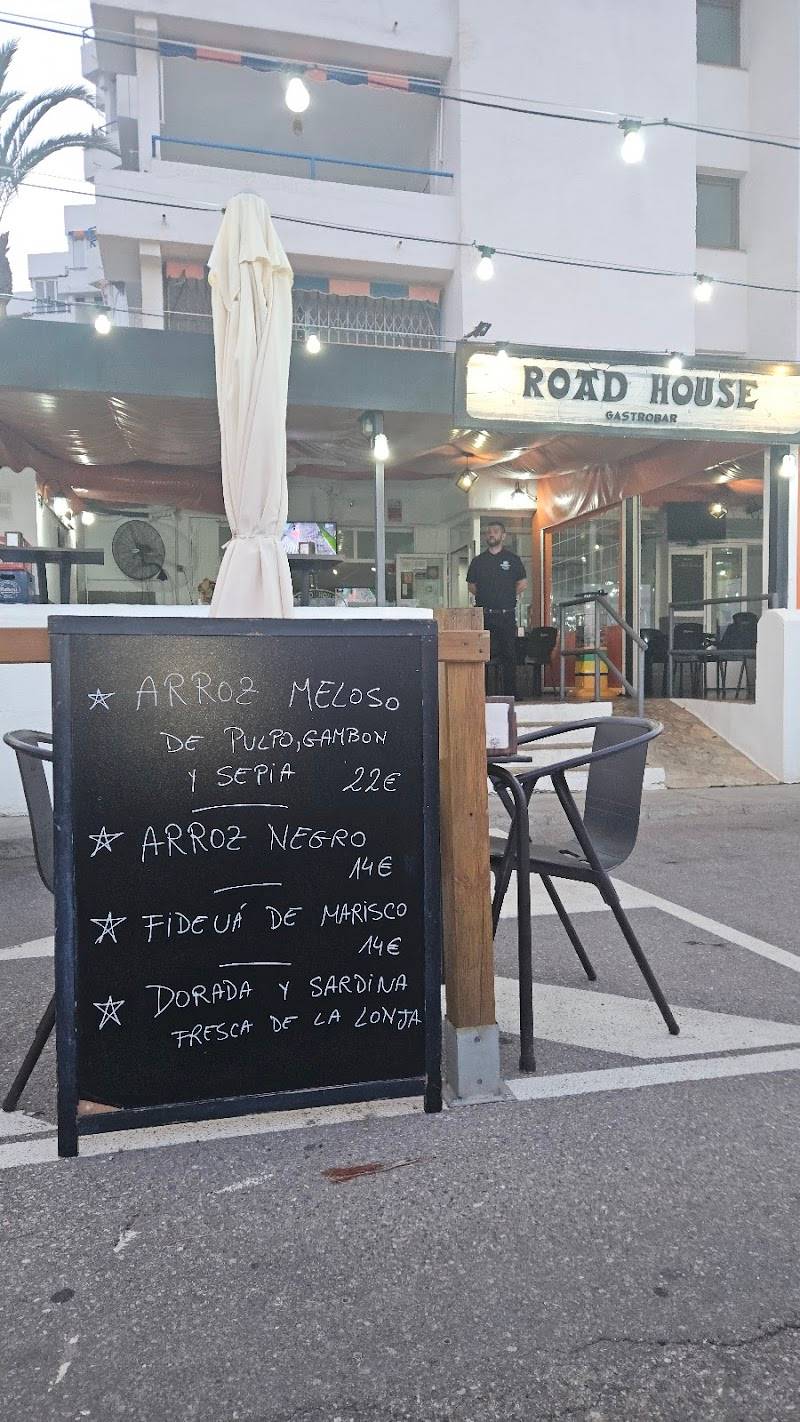 ROAD HOUSE
GASTROBAR
ARROZ MELOSO
DE PULPO, GAMBON
Y SEPIA 22€
ARROZ NEGRO
14€
FIDEUÁ DE MARISCO
14€
DORADA Y SARDINA
FRESCA DE LA LONJA